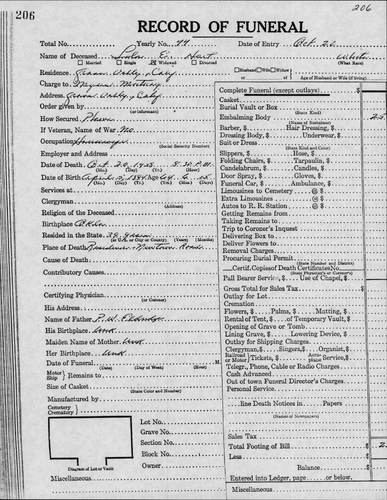 206
206
RECORD OF FUNERAL
Total No. Yearly No. 77 Date of Entry Oct. 20
Name of Deceased E. Hunt White
Married Single Widowed Divorced (What Race)
Residence Husband Widow
Charge to or Age of Husband or Wife (if living)
Address
Order given by
(or informant)
How Secured Phone
If Veteran, Name of War No.
Occupation Housewife
(Social Security Number)
Employer and Address
Date of Death Oct. 20, 5:30 P.M.
(Mo.) (Day) (Year) (Hour)
Date of Birth April
(Mo.) (Day) (Year) (Yrs.) (Mos.) (Days)
Services at
Clergyman
(Address)
Religion of the Deceased
Birthplace
Resided in the State 39 years
(or U.S., or City or County) (Years) (Months)
Place of Death Residence
Cause of Death
Contributory Causes
Certifying Physician
(or Coroner)
His Address
Name of Father
His Birthplace Unk
Maiden Name of Mother Unk
Her Birthplace Unk
Date of Funeral M.
(Date) (Day of Week) (Hour)
Motor Ship Remains to
Size of Casket
(State Color and Number)
Manufactured by
Cemetery
Crematory
Lot No.
Grave No.
Section No.
Block No.
Owner
Diagram of Lot or Vault
Miscellaneous
Complete Funeral (except outlays)
Casket
Burial Vault or Box
(State Kind)
Embalming Body 25
(Name of Embalmer)
Barber, $ Hair Dressing, $
Dressing Body, $ Underwear, $
Suit or Dress
(State Kind and Color)
Slippers, $ Hose, $
Folding Chairs, $ Tarpaulin, $
Candelabrum, $ Candles, $
Door Spray, $ Gloves, $
Funeral Car, $ Ambulance, $
Limousines to Cemetery @ $
Extra Limousines @ $
Autos to R. R. Station @ $
Getting Remains from
Taking Remains to
Trip to Coroner's Inquest
Delivering Box to
Deliver Flowers to
Removal Charges
Procuring Burial Permit
(State Number and District)
Certif. Copies of Death Certificates No.
(State Physician's or Coroner's)
Pall Bearer Service, $ Use of Chapel, $
Gross Total for Sales Tax
Outlay for Lot
Cremation
Flowers, $ Palms, $ Matting, $
Rental of Tent, $ of Temporary Vault, $
Opening of Grave or Tomb
Lining Grave, $ Lowering Device, $
Outlay for Shipping Charges
Clergyman, $ Singers, $ Organist, $
Railroad or Motor Tickets, $ Aeroplane Service, $
Telegr., Phone, Cable or Radio Charges
Cash Advanced
Out of town Funeral Director's Charges
Personal Service
line Death Notices in Papers
(Names of Newspapers)
Sales Tax
Total Footing of Bill $ 2
Less
Balance $
Entered into Ledger, page or below.
Miscellaneous